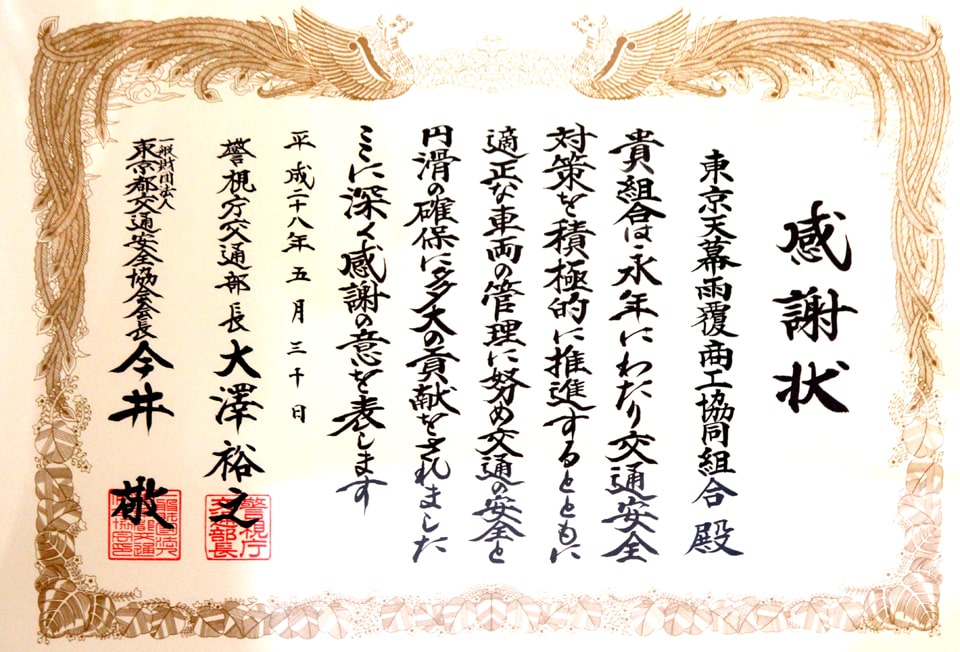 感謝状
東京天幕雨覆商工協同組合 殿
貴組合は永年にわたり交通安全
対策を積極的に推進するとともに
適正な車両の管理に努め交通の安全と
円滑の確保に多大の貢献をされました
ここに深く感謝の意を表します
平成二十八年五月三十日
警視庁交通部長 大澤裕之
警視庁
交通部長
一般財団法人
東京都交通安全協会会長 今井 敬